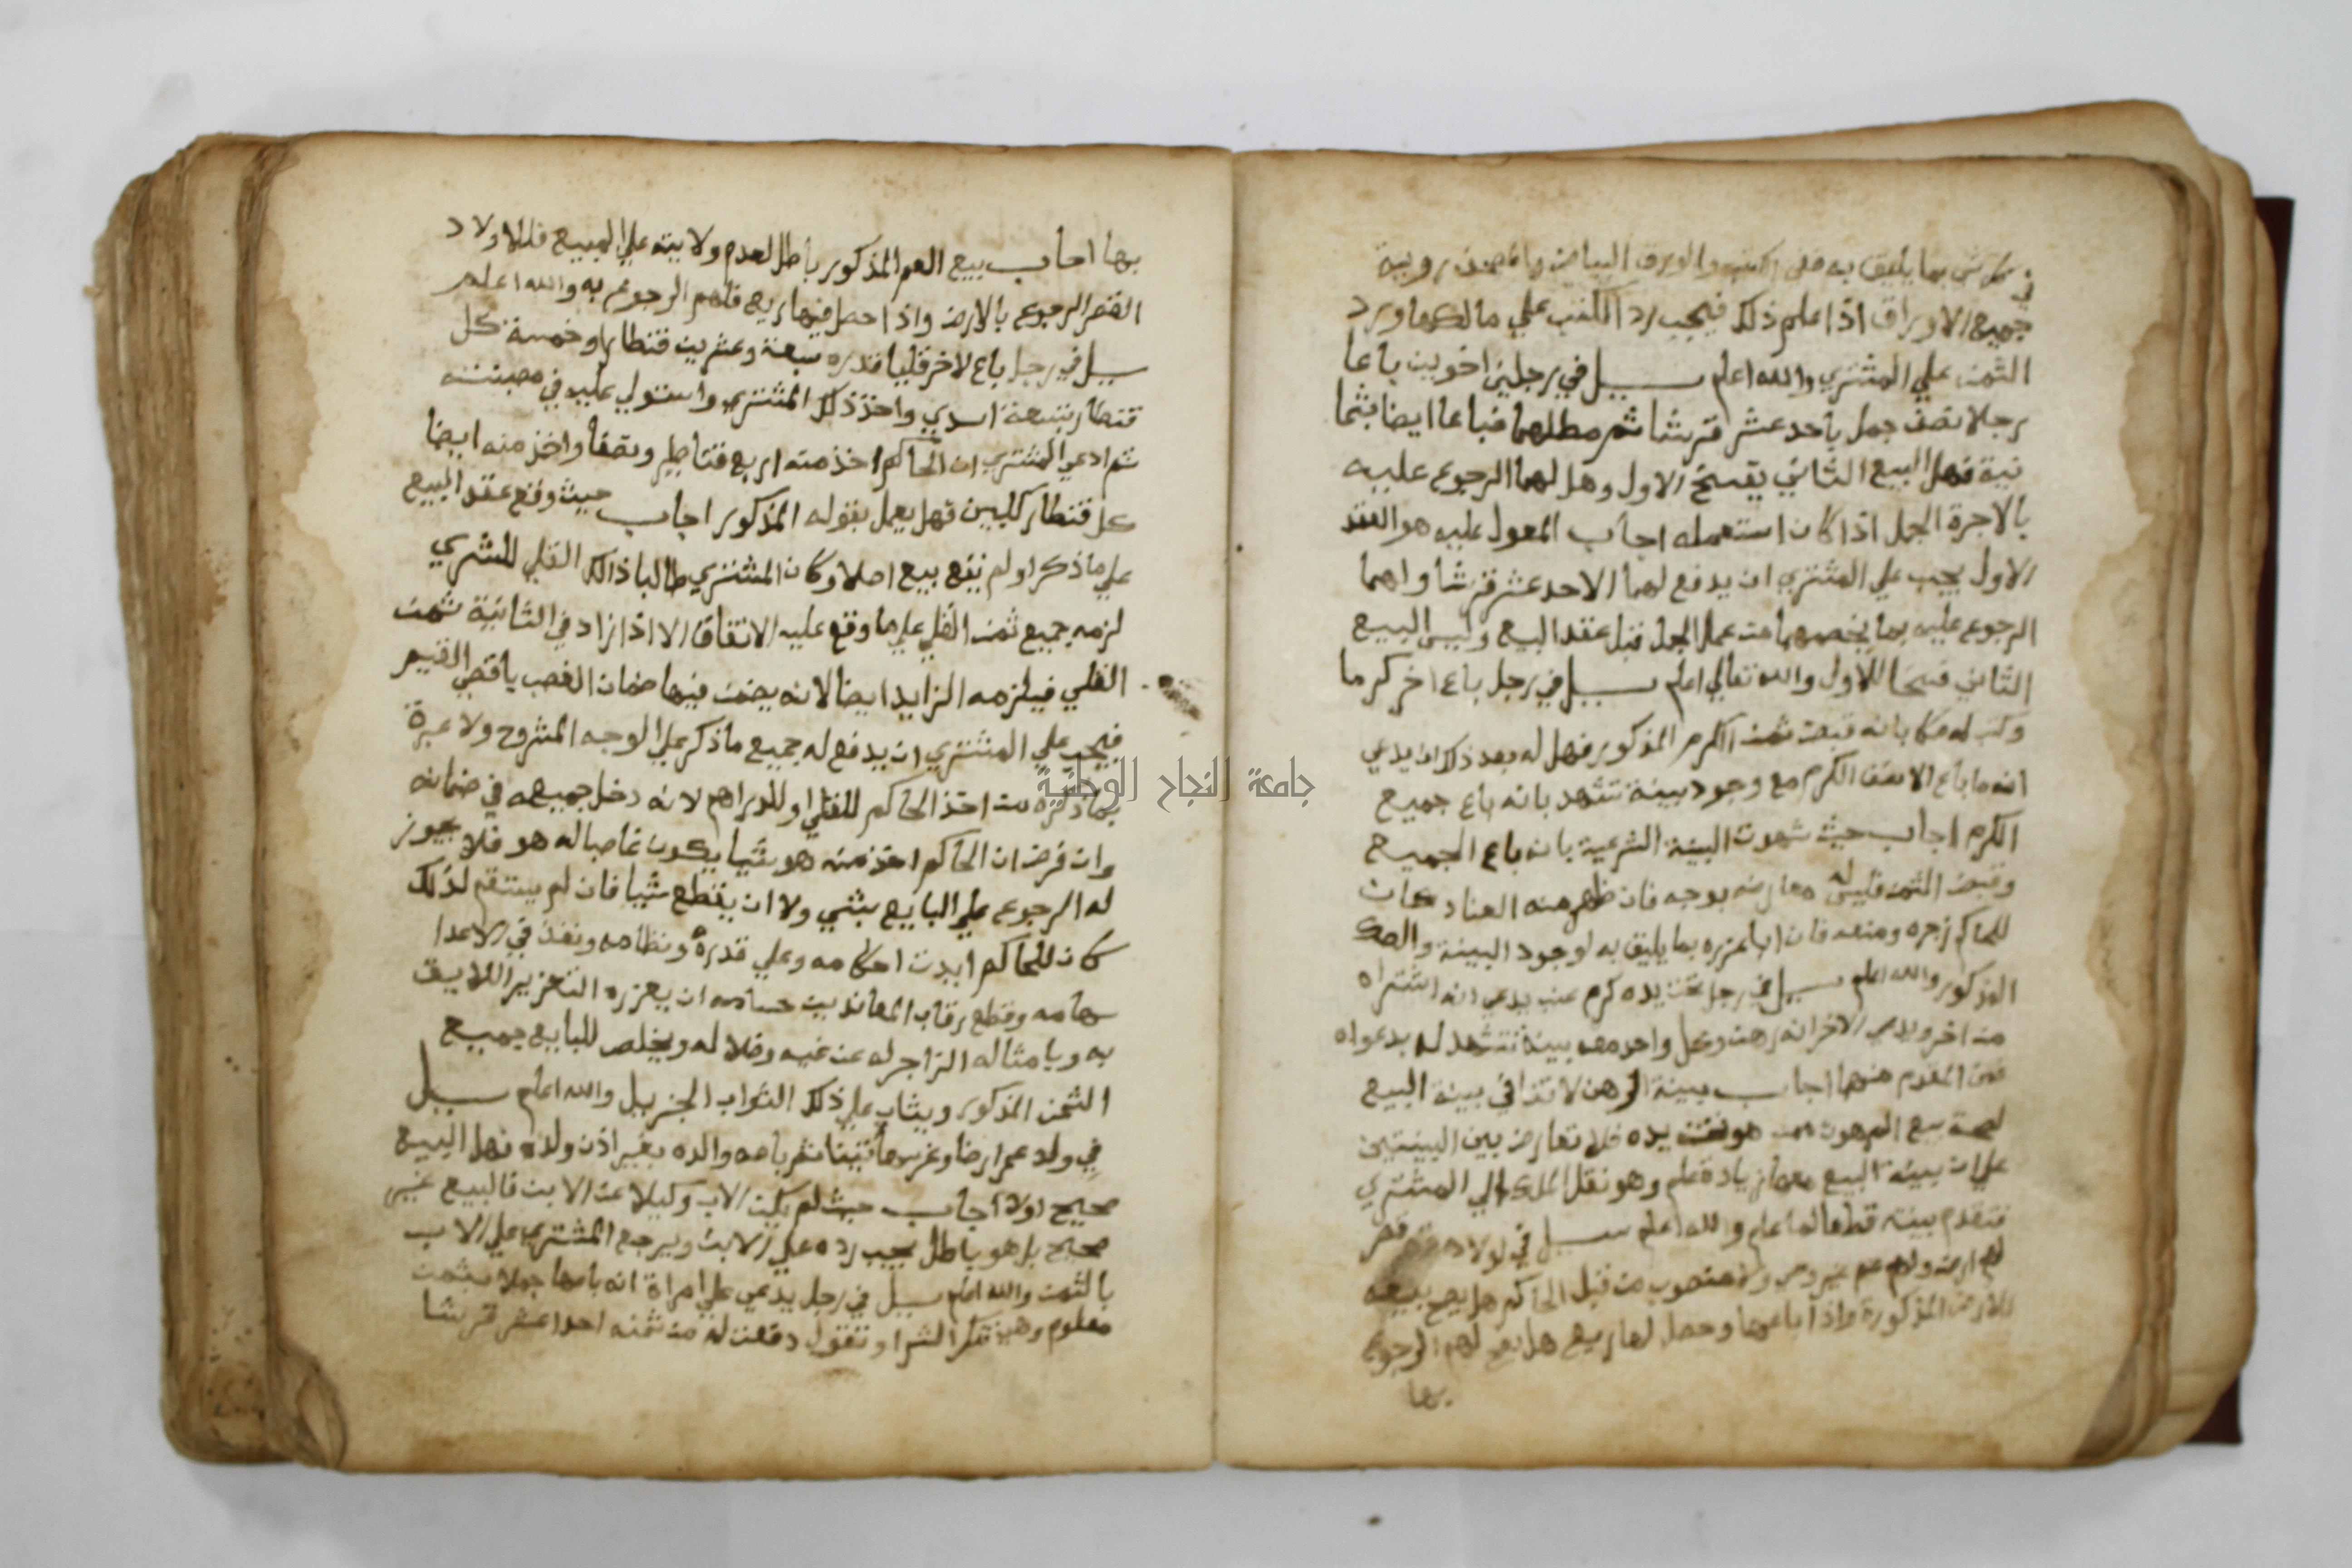 في كل شي بما يليق به ففي الكتب والورق البياض رؤية
جميع الاوراق اذا علم ذلك فيجب رد الكتب علي مالكها ورد
الثمن علي المشتري والله اعلم سيل في رجلين اخوين باعا
رجلا نصف جمل باحد عشر قرشا ثم مطلهما فباعا ايضا بثما
نية فهل البيع الثاني يفسخ الاول وهل لهما الرجوع عليه
بالاجرة الجمل اذا كان استعمله اجاب المعول عليه هو العقد
الاول يجب علي المشتري ان يدفع لهما الاحد عشر قرشا ولهما
الرجوع عليه بما يخصهما من عمل الجمل قبل عقد البيع وليس البيع
الثاني فسخا للاول والله تعالي اعلم سيل في رجل باع اخر كرما
وكتب له مكا بانه قبض ثمن الكرم المذكور فهل له بعد ذلك ان يدعي
انه ما باع الا نصف الكرم مع وجود بينة تشهد بانه باع جميع
الكرم اجاب حيث شهدت البينة الشرعية بان باع الجميع
وقبض الثمن فليس له معارضه بوجه فان ظهر منه العناد كان
للحاكم زجره ومنعه فان ابا عزره بما يليق به لوجود البينة والصك
المذكور والله اعلم سيل في رجل تحت يده كرم عنب يدعي انه اشتراه
من اخر ويدعي الاخر انه رهن وكل واحد معه بينة تشهد له بدعواه
فمن المقدم منهما اجاب بينة الرهن لا تنافي بينة البيع
لصحة بيع المرهون ممن هو تحت يده فلا تعارض بين البينتين
علي ان بينة البيع معها زيادة علم وهو نقل الملك الي المشتري
فتقدم بينته قطعا لما علم والله اعلم سيل في اولاد قصر
لهم ارض ولهم عم غير وصي ولا منصوب من قبل الحاكم هل يصح بيعه
للارض المذكورة واذا باعها وحصل لها ريع هل يصح لهم الرجوع
بها
بها اجاب بيع العم المذكور باطل لعدم ولايته علي المبيع فللاولاد
القصر الرجوع بالارض واذا حصل فيها ريع فلهم الرجوع به والله اعلم
سيل في رجل باع لاخر قليا قدره سبعة وعشرين قنطارا وخمسة كل
قنطار بتسعة اسدي واخذ ذلك المشتري واستولي عليه في مصبنته
ثم ادعي المشتري ان الحاكم اخذ منه اربع قناطير ونصفا واخذ منه ايضا
كل قنطار كلبين فهل يعمل بقوله المذكور اجاب حيث وقع عقد البيع
علي ما ذكر او لم يقع بيع اصلا وكان المشتري طالبا ذالك القلي للمشري
لزمه جميع ثمن القلي علي ما وقع عليه الاتفاق الا اذا زاد في الثانية ثمن
القلي فيلزمه الزايد ايضا لانه يضمن فيها ضمان الغصب باقصي القيم
فيجب علي المشتري ان يدفع له جميع ما ذكر علي الوجه المشروح ولا عبرة
بما ذكره من اخذ الحاكم للقلي او للدراهم لانه دخل جميعه في ضمانه
وان فرض ان الحاكم اخذ منه هو شيا يكون غاصبا له هو فلا يجوز
له الرجوع علي البايع بشي ولا ان يقطع شيا فان لم ينتقم لذلك
كان للحاكم ايدت احكامه وعلي قدره ونظامه ونفذ في الاعدا
سهامه وقطع رقاب المعاندين حسامه ان يعزره التعزير اللايق
به وبامثاله الزاجر له عن غيه وضلاله ويخلص للبايع جميع
الثمن المذكور ويثاب علي ذلك الثواب الجزيل والله اعلم سيل
في ولد عمر ارضا وغرسها تينا ثم باعه والده بغير اذن ولده فهل البيع
صحيح اولا اجاب حيث لم يكن الاب وكيلا عن الابن فالبيع غير
صحيح بل هو باطل يجب رده علي الابن ويرجع المشتري علي الاب
بالثمن والله اعلم سيل في رجل يدعي علي امراة انه باعها جملا بثمن
معلوم وهي تنكر الشرا وتقول دفعت له من ثمنه احد عشر قرشا
جامعة النجاح الوطنية